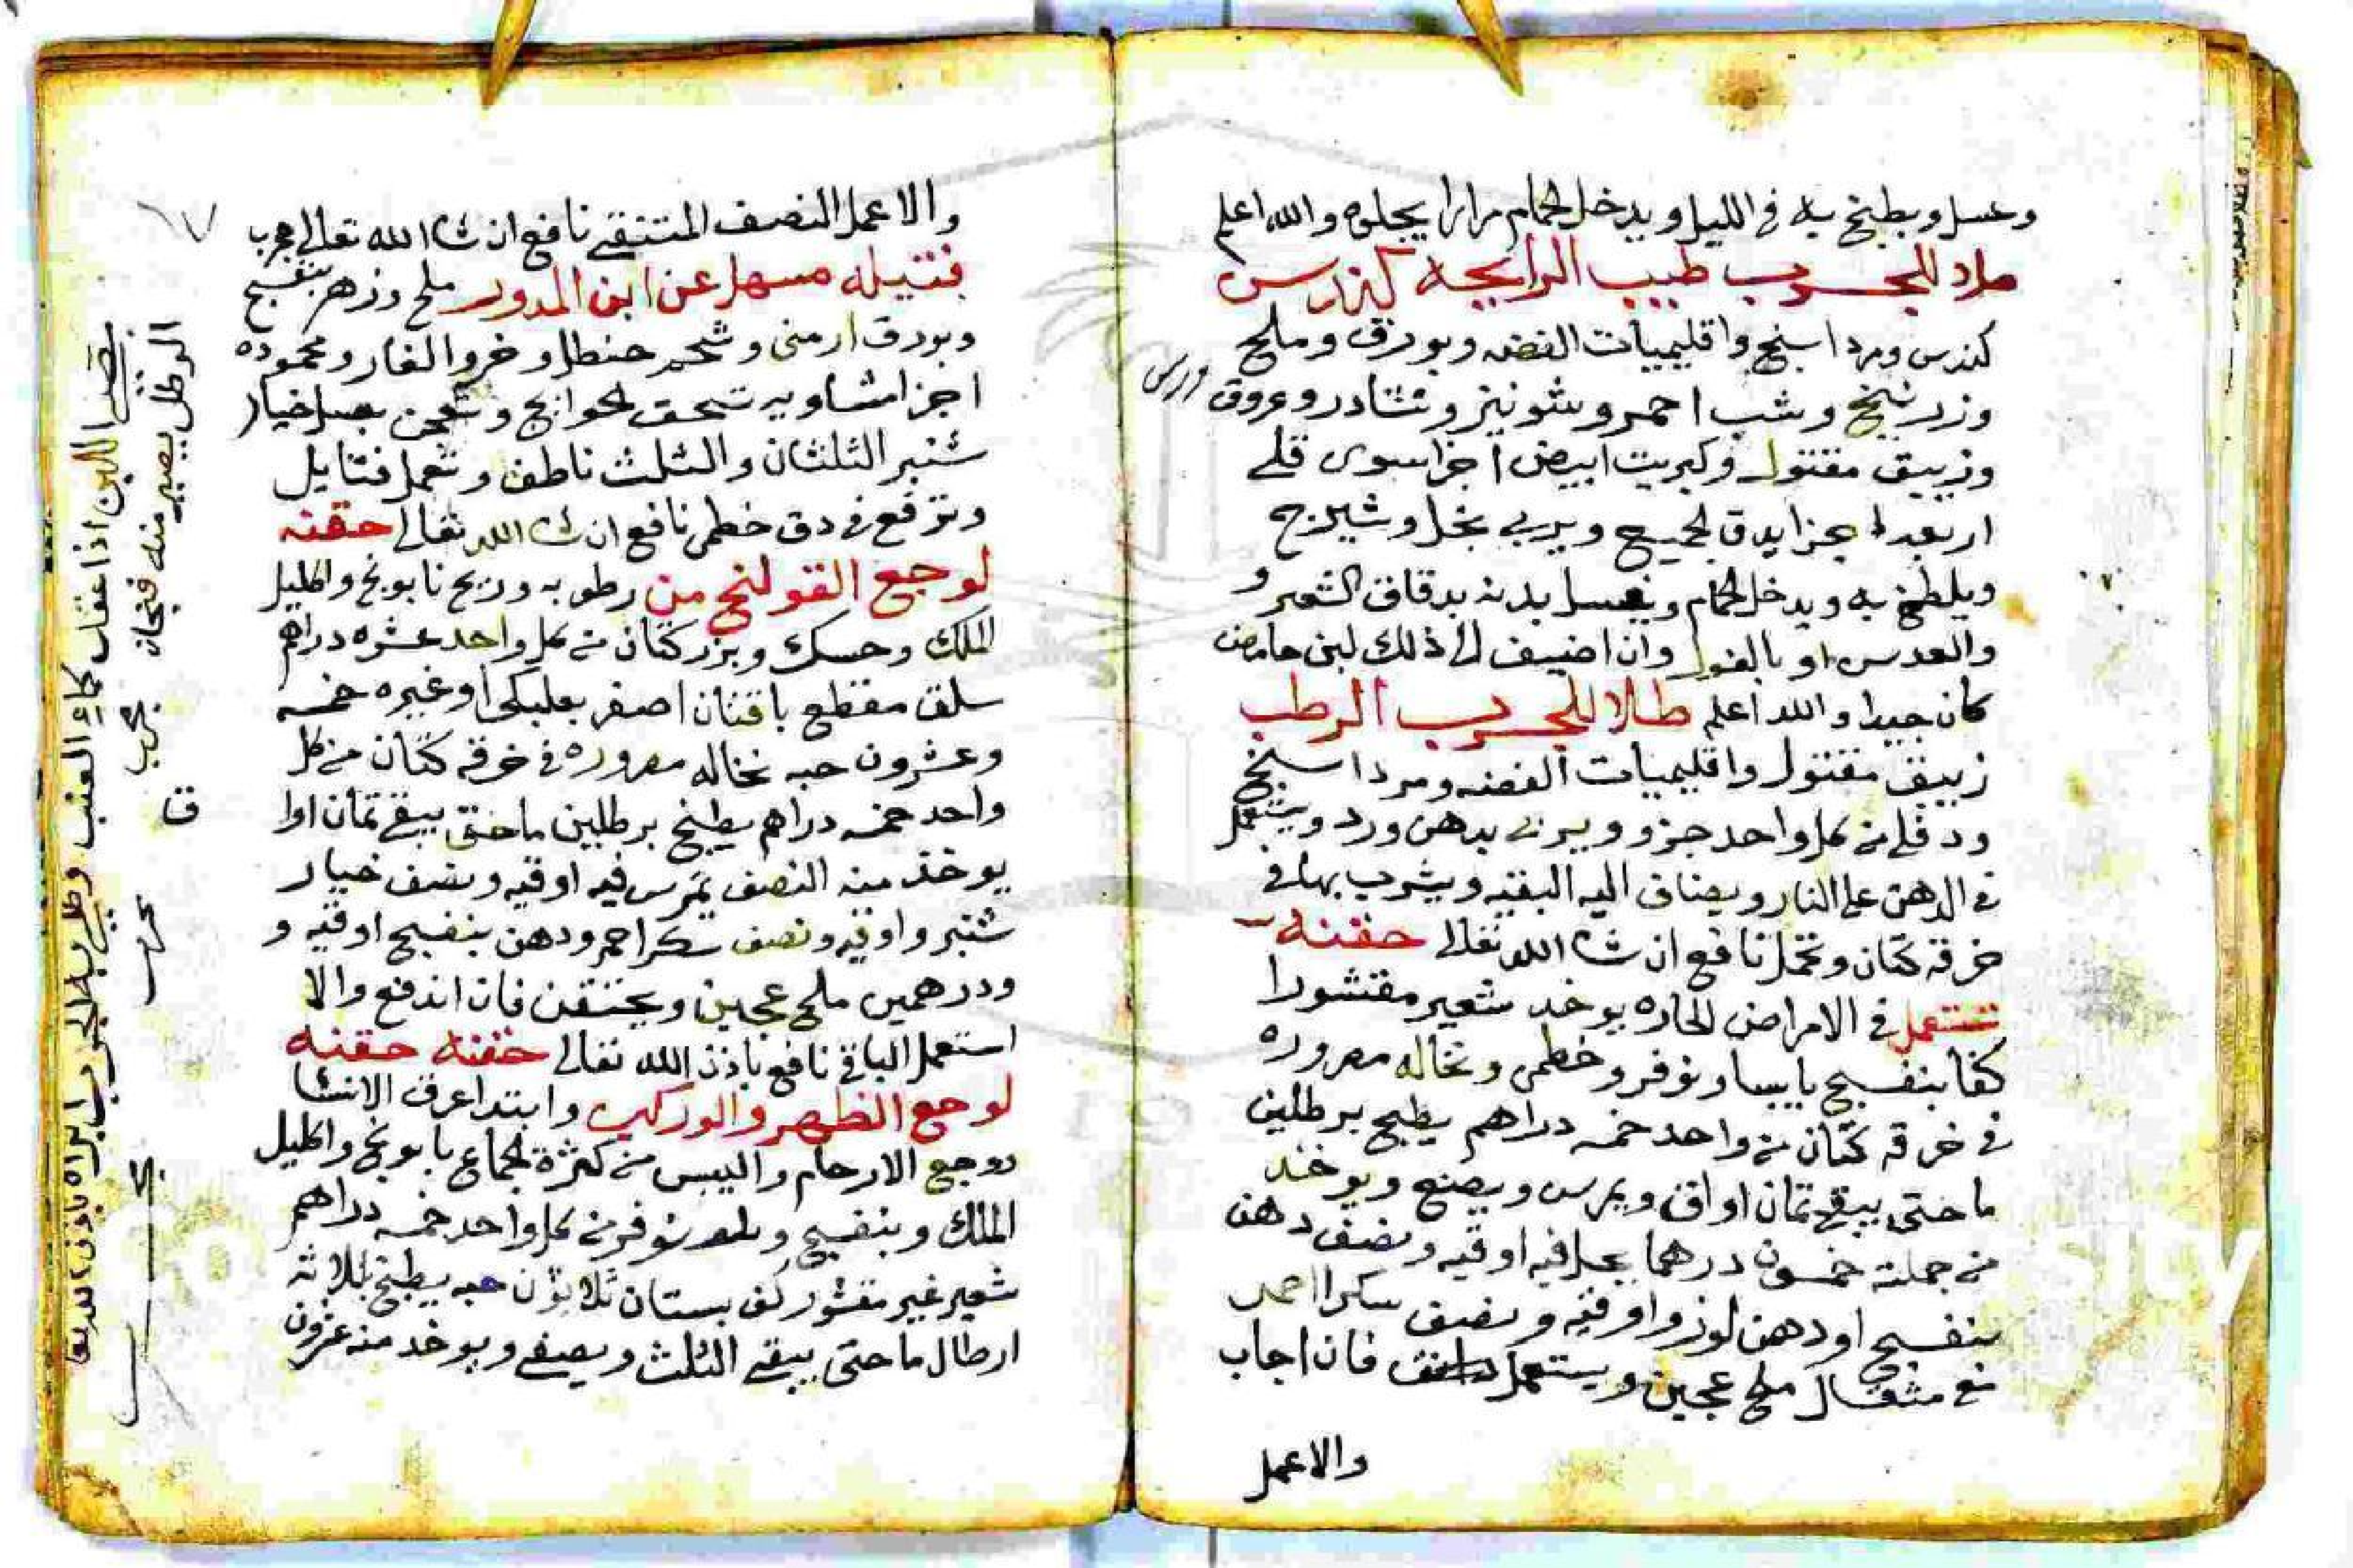 وعسل ويطبخ به في الليل ويدخل الحمام مرارا يجلوه والله اعلم
طلاء للجرب طيب الرايحه كندرس
كندرس ومرداسنج واقليميات الفضه وبورق وملح
وزرنيخ وشب احمر وشونيز ونشادر وعروق
ورس
وزيبق مقتول وكبريت ابيض اجزا سوى قلى
اربعه اجزا يدق الجميع ويربي بخل وشيرج
ويلطخ به ويدخل الحمام ويغسل بدنه بدقاق الشعير و
والعدس او بالفول وان اضيف الى ذلك لبن حامض
كان جيدا والله اعلم طلا للجرب الرطب
زيبق مقتول واقليميات الفضه ومرداسنج
ودفلى من كل واحد جزو ويربى بدهن ورد ويستعمل
في الدهن على النار ويضاف اليه البقيه ويشرب بها في
خرقه كتان وتحمل نافع ان شا الله تعالى حقنه
تستعمل في الامراض الحاره يوخد شعير مقشورا
كفا بنفسج يابسا ونوفر وخطمى ونخاله مصروره
في خرقه كتان من واحد خمسه دراهم يطبخ برطلين
ما حتى يبقى ثمان اواق ويمرس ويصفع ويوخد
من جملته خمسون درهما يجعل فيه اوقيه ونصف دهن
بنفسج او دهن لوز واوقيه ونصف سكرا احمر
مع مثقال ملح عجين ويستعمل فان اجاب
والا عمل
والا عمل النصف المتبقي نافع ان شا الله تعالى مجرب
فتيله مسهل عن ابن المدور ملح وزهر بنفسج
وبورق ارمنى وشحم حنظل وخرو الفار ومحموده
اجزا متساويه تسحق الحوايج وتعجن بعسل خيار
شنبر الثلثان والثلث ناطف وتعمل فتايل
وترفع في دق خطمى نافع ان شا الله تعالى حقنه
لوجع القولنج من رطوبه وريح بابونج واكليل
الملك وحسك وبزر كتان من كل واحد عشره دراهم
سلق مقطع باقتان اصفر بعلبكى او غيره خمسه
وعشرون حبه نخاله مصروره في خرقه كتان من كل
واحد خمسه دراهم يطبخ برطلين ما حتى يبقى ثمان اوا
يوخذ منه النصف يمرس فيه اوقيه ونصف خيار
شنبر واوقيه ونصف سكر احمر ودهن بنفسج اوقيه و
ودرهمين ملح عجين ويحتقن فان اندفع والا
استعمل الباقي نافع باذن الله تعالى حقنه حقنه
لوجع الظهر والوركين وابتدا عرق الانسا
ووجع الارحام واليبس من كثرة الجماع بابونج واكليل
الملك وبنفسج ونوفر من كل واحد خمسه دراهم
شعير غير مقشور كف بستان ثلاثون حبه يطبخ بثلاثه
ارطال ما حتى يبقى الثلث ويصفى ويوخد منه عشرون
الرطل يصير منه فنجان مجرب
اللبن اذا عقد بماء العنب وطلي به الجرب ابراه باذن الله تعا